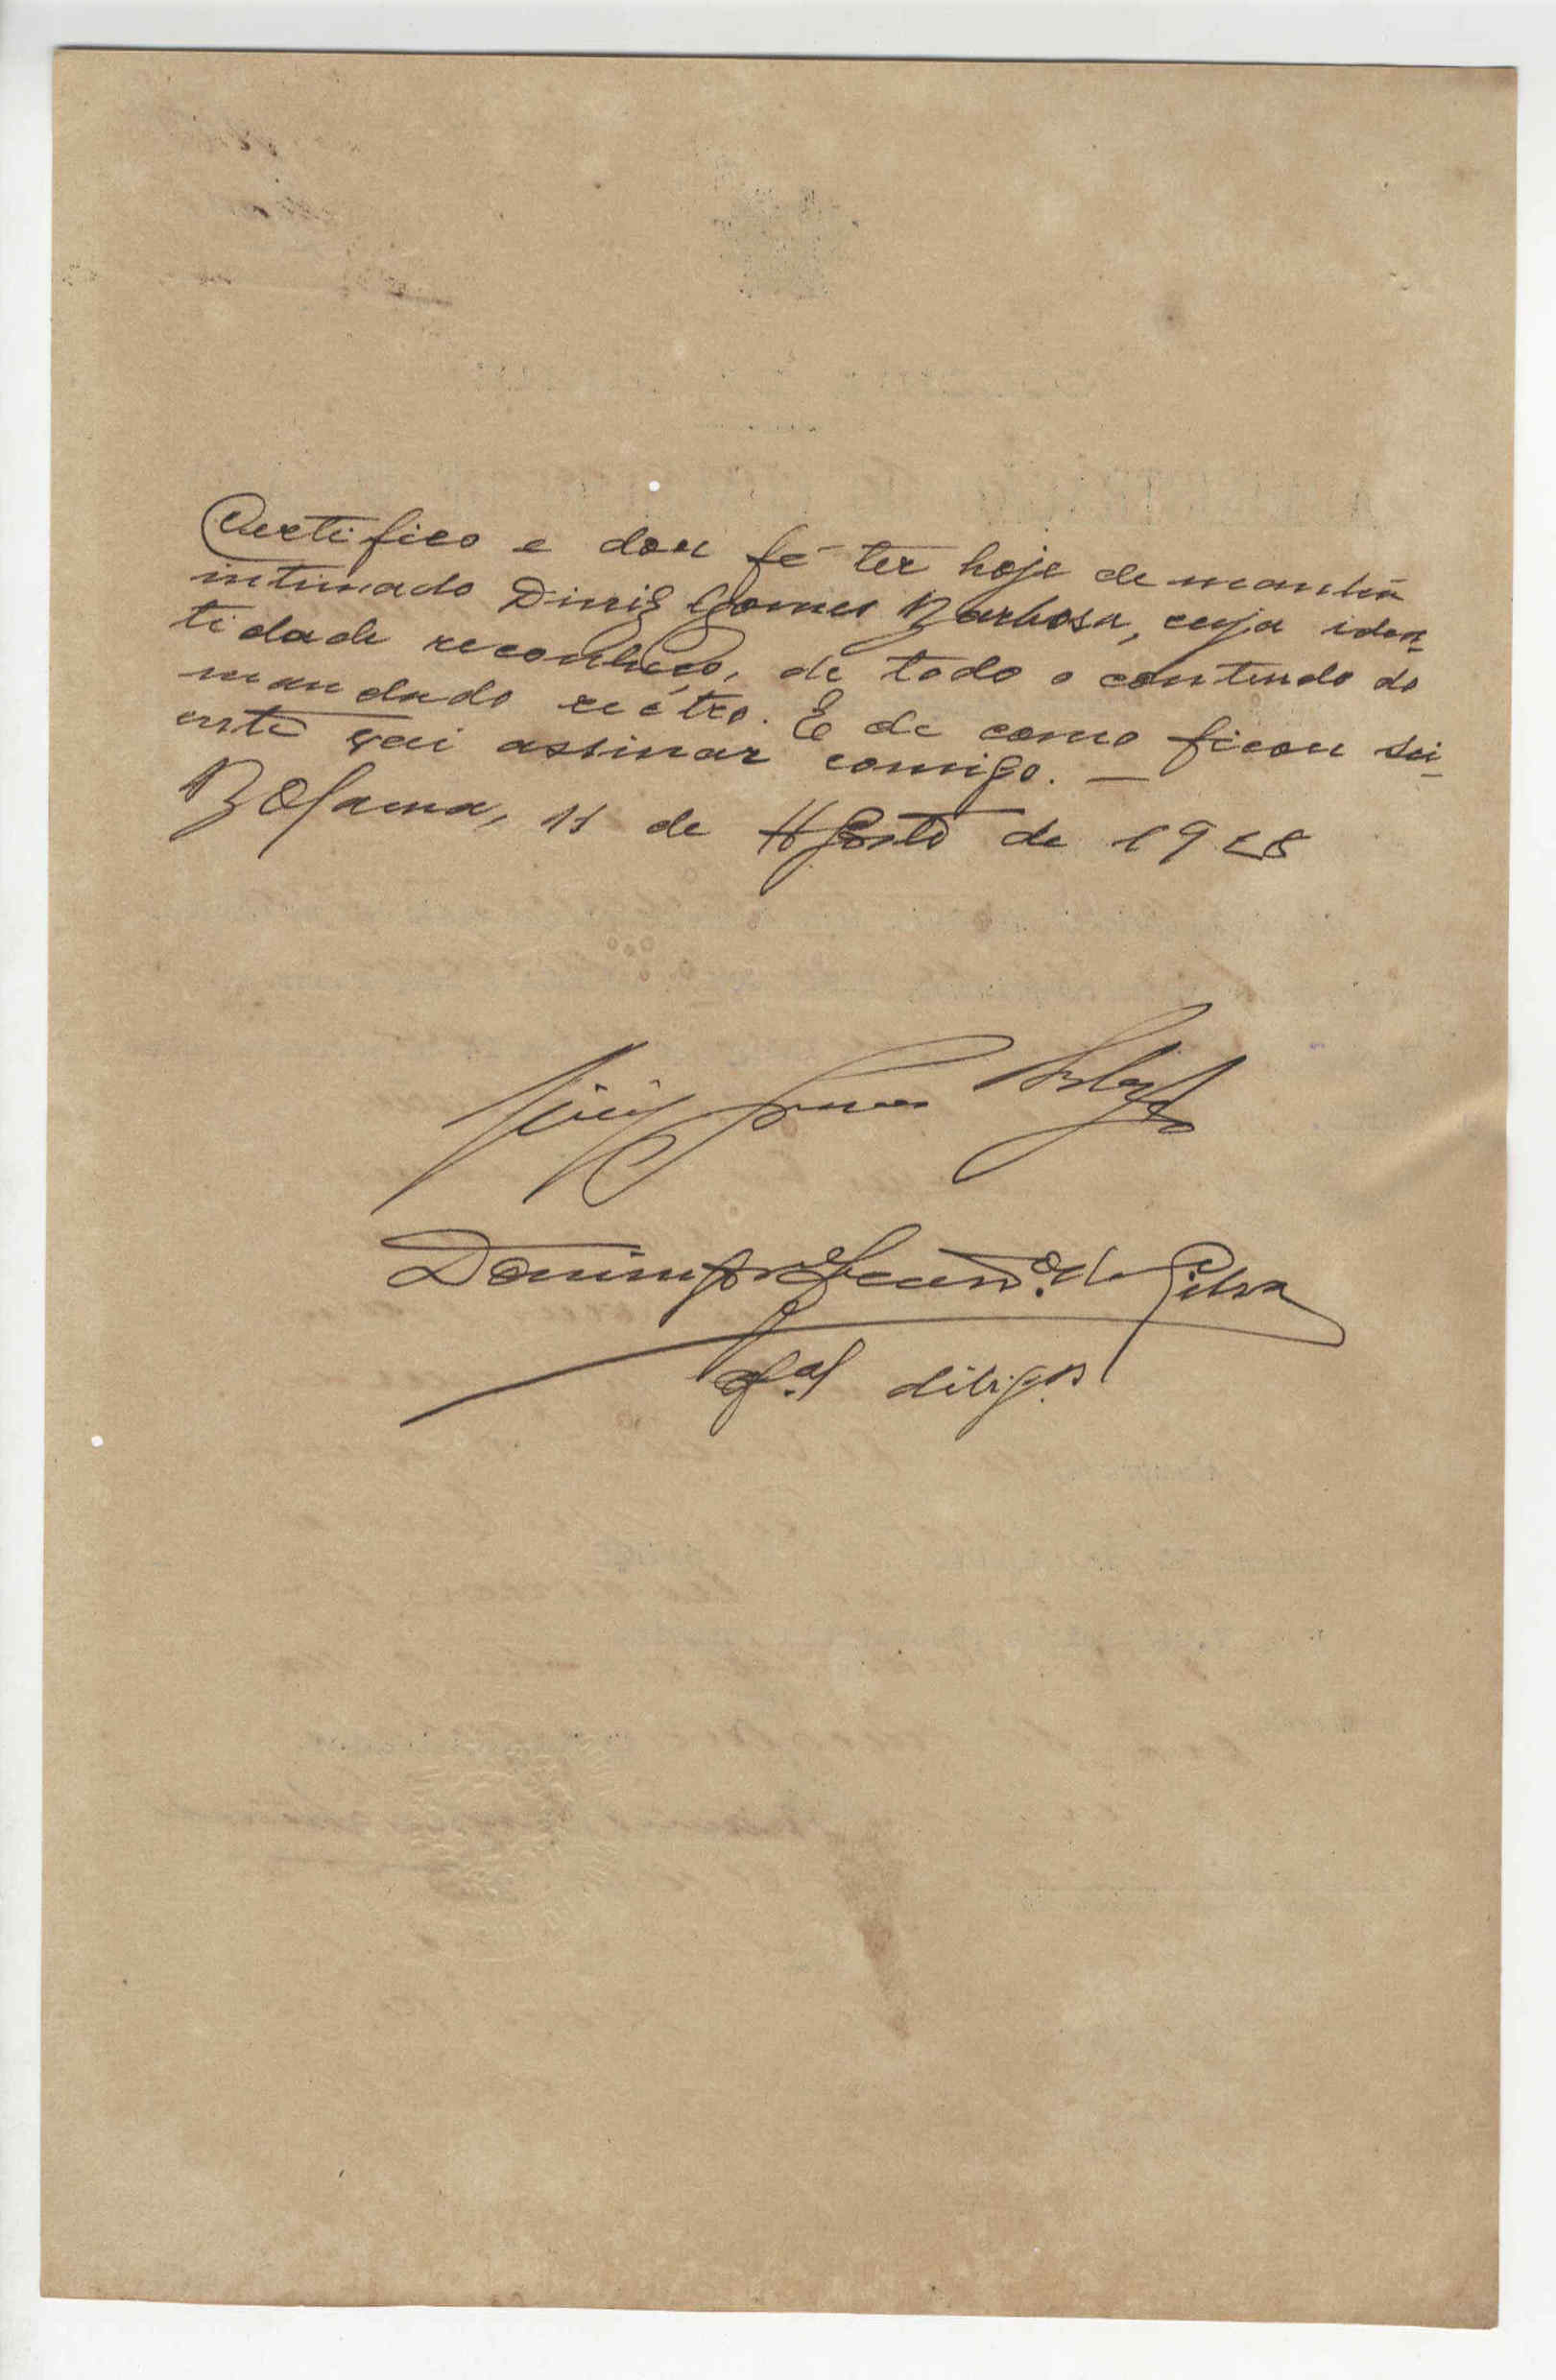 Certifico e dou fé ter hoje de manhã
intimado Diniz Gomes Barbosa, cuja iden-
tidade reconheço, de todo o conteudo do
mandado reétro. E de como ficou sci-
ente vai assinar comigo. —
Bolama, 11 de Agosto de 1928
Diniz Gomes Barbosa
Domingos da Silva
of.al dilig.as